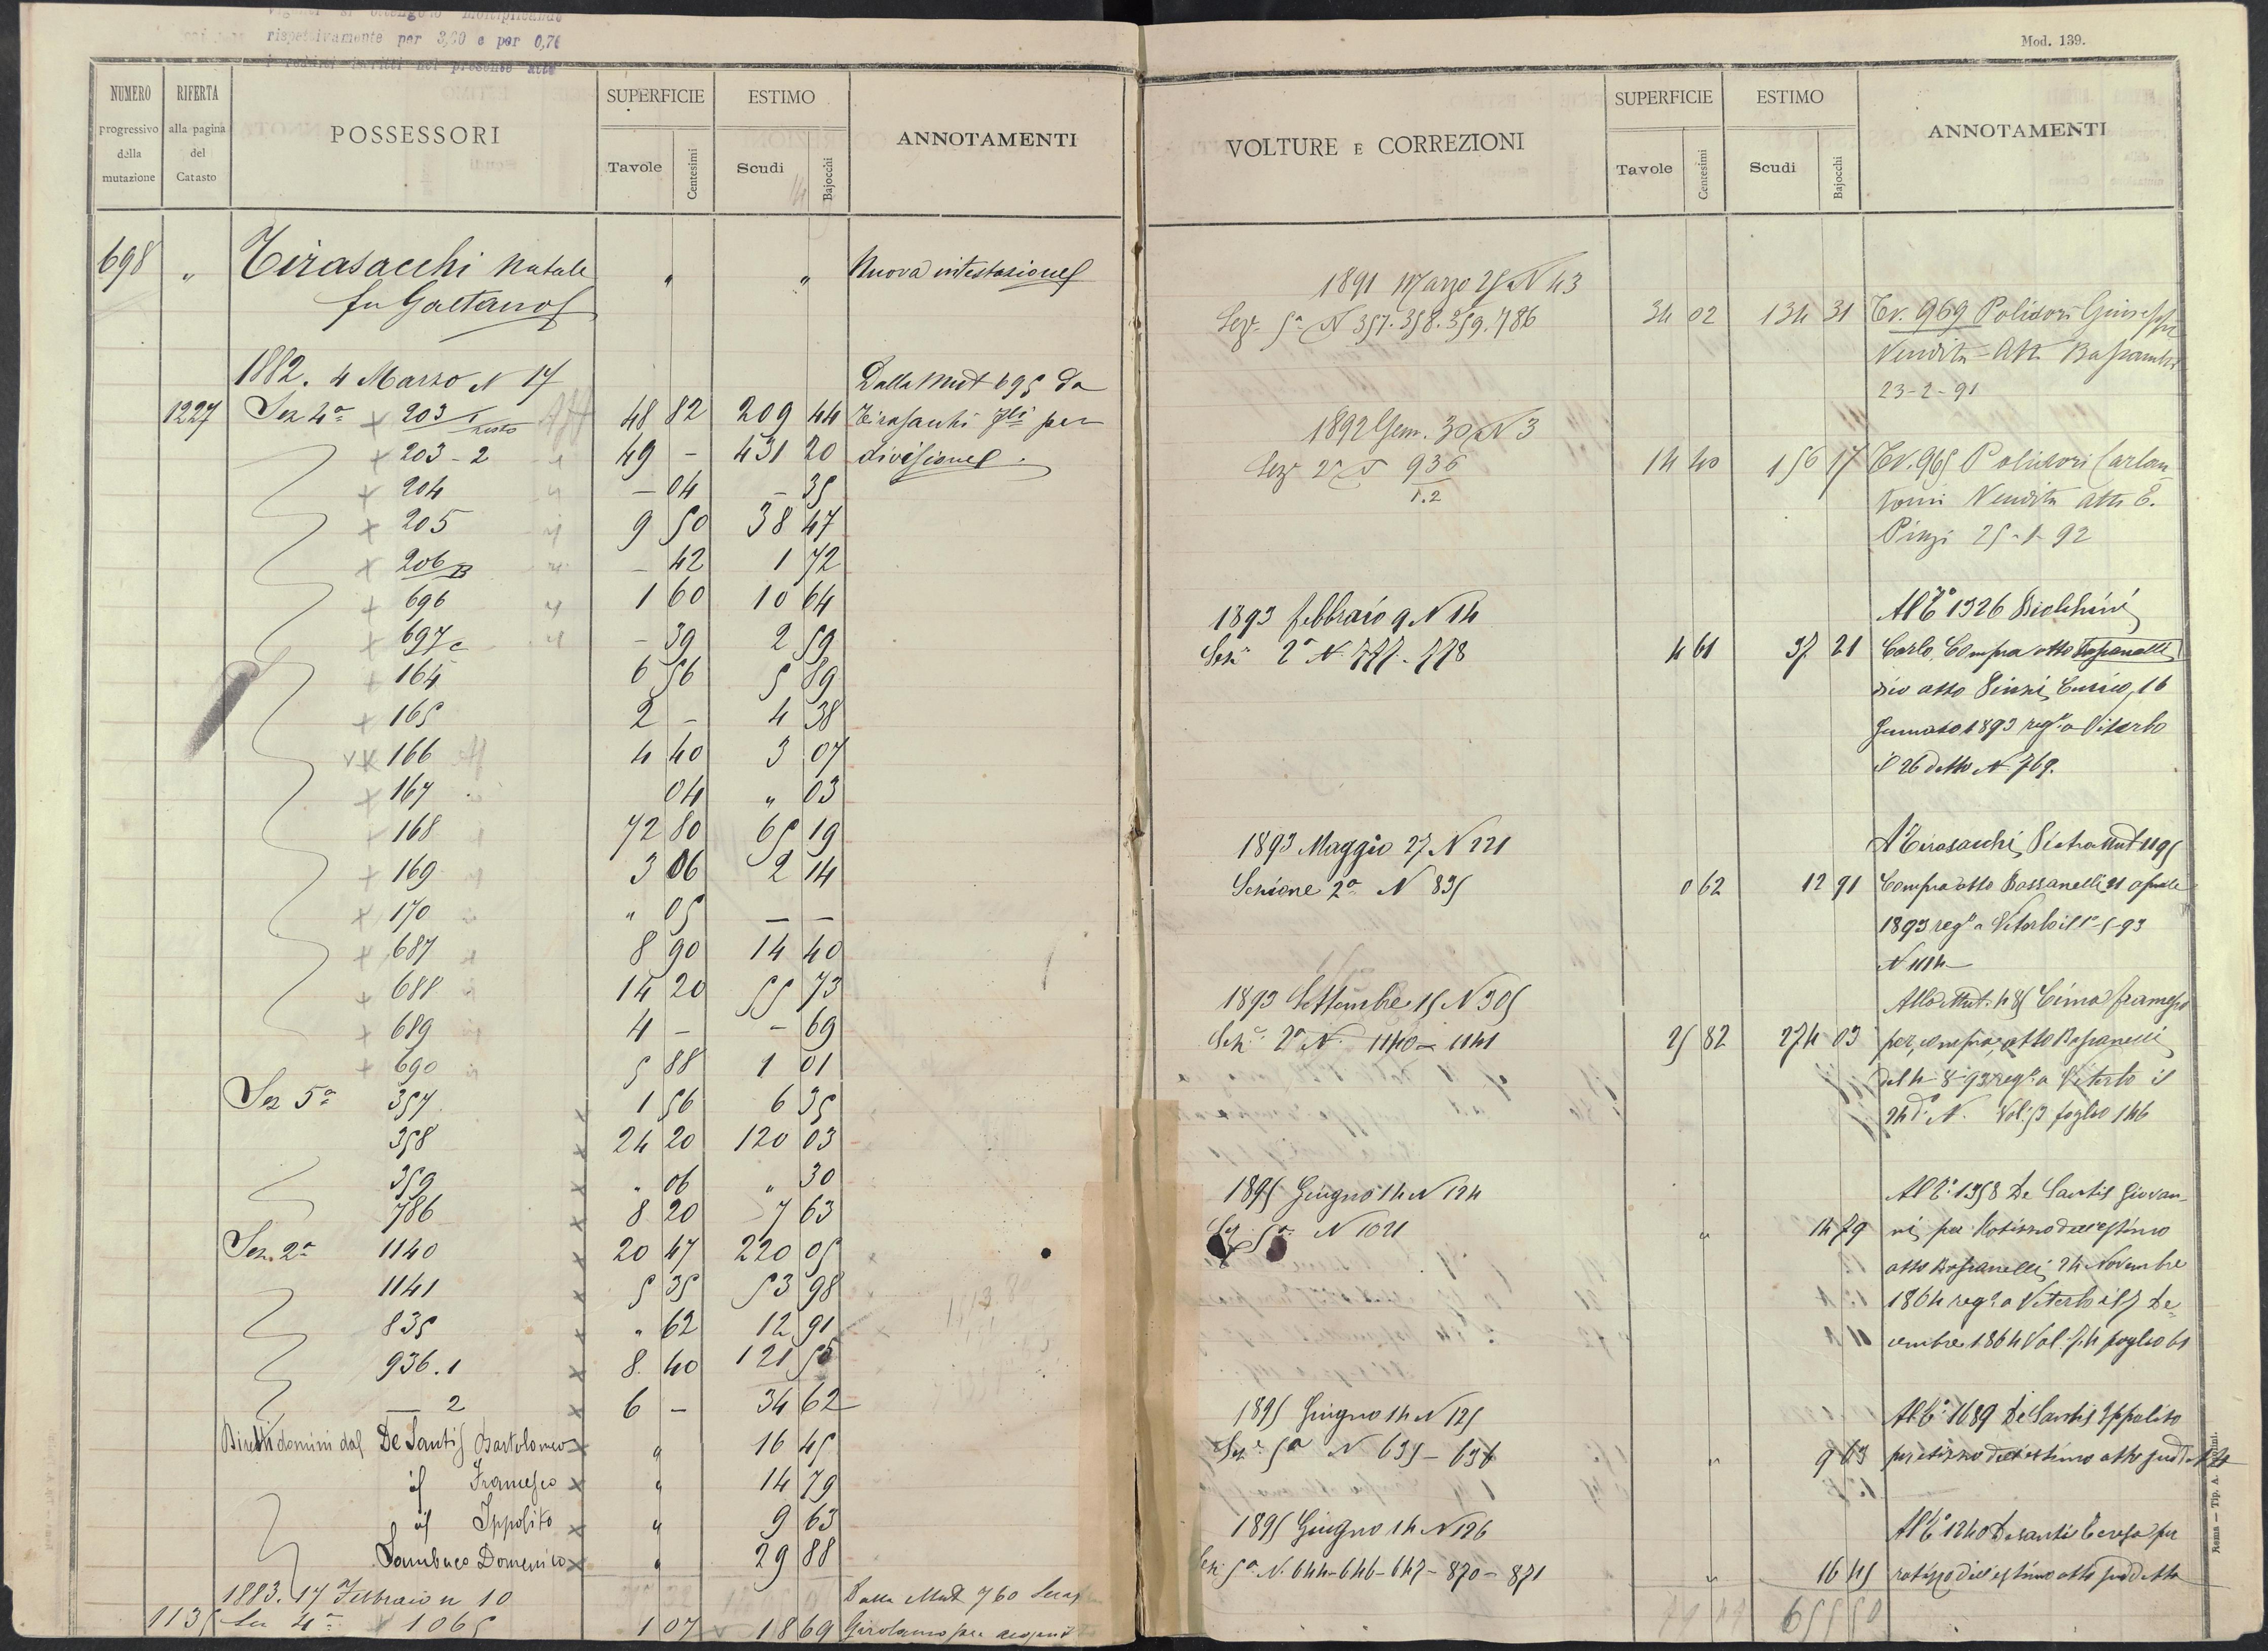 rispettivamente per 3,20 e per 0,76
i redditi iscritti nel presente
NUMERO progressivo della mutazione
RIFERTA alla pagina del Catasto
POSSESSORI
SUPERFICIE Tavole Centesimi
ESTIMO Scudi Bajocchi
ANNOTAMENTI
698 " Tirasacchi Natale " " Nuova intestazione
fu Gaetano
1882. 4 Marzo N 17 Dalla Mut 695 da
1227 Sez 4a 203 1 resto 48 82 209 44 Tirasacchi per
203-2 49 - 431 20 divisione.
204 - 04 - 35
205 9 50 38 47
206 B - 42 1 72
696 1 60 10 64
697 c - 39 2 59
164 6 56 5 89
165 2 - 4 38
166 4 40 3 07
167 04 " 03
168 72 80 65 19
169 3 06 2 14
170 " 05 - -
687 8 90 14 40
688 14 20 55 73
689 4 - - 69
690 5 88 1 01
Sez 5a 357 1 56 6 35
358 24 20 120 03
359 " 06 " 30
786 8 20 7 63
Sez. 2a 1140 20 47 220 05
1141 5 35 53 98
835 " 62 12 91
936.1 8 40 121 55
— 2 6 - 34 62
Diretti domini dal De Santis Bartolomeo " 16 45
id Francesco " 14 79
id Ippolito " 9 63
Sambuco Domenico " 29 88
1883. 17 Febbraio n 10 Dalla Mut 760
1135 Sez 4a 1065 1 07 18 69 Girolamo per
Mod. 139.
VOLTURE E CORREZIONI
SUPERFICIE Tavole Centesimi
ESTIMO Scudi Bajocchi
ANNOTAMENTI
1891 Marzo 25 N 43
Sez. 5a N 357.358.359.786 34 02 134 31 Tr. 969 Polidori Giuseppe
Vendita Atti
23-2-91
1892 Gen. 30 N 3
Sez 2a N 936 14 40 156 17 Tr. 965 Polidori Carlan
1.2 tonio Vendita atti E.
Pinzi 25-1-92
1893 febbraio 9 N 14 Al To 1326
Sez. 2a N. 777-778 4 61 37 21 Carlo. Compra atto
atto Pinzi Enrico, 16
Gennaio 1893 reg. a Viterbo
il 26 detto N. 769.
1893 Maggio 27 N 221 A Tirasacchi Pietro Mut 1195
Sezione 2a N 835 0 62 12 91 Compra atto Bassanelli 21 aprile
1893 reg. a Viterbo il 1-5-93
N 1114
1893 Settembre 15 N 305 Alla Mut. 485 Cima Francesco
Sez. 2a N. 1140-1141 25 82 274 03 per compra atto Bassanelli
del 4-8-93 reg. a Viterbo il
24 do N. Vol. 53 foglio 146
1895 Giugno 14 N 124 Al To 1358 De Santis Giovan-
Sez. 5a N 1021 " 14 79 ni per dell'estimo
atto Bassanelli 24 Novembre
1864 reg. a Viterbo il 7 De-
cembre 1864 Vol. 54 foglio 61
1895 Giugno 14 N 125 Al To 1689 De Santis Ippolito
Sez. 5a N 635-636 " 9 63 per dell'estimo atto
1895 Giugno 14 N 126 Al To 1240 Desantis Teresa per
Sez. 5a N. 644-646-647-870-871 " 16 45 dell'estimo atto suddetto
655 50
Roma — Tip. A.